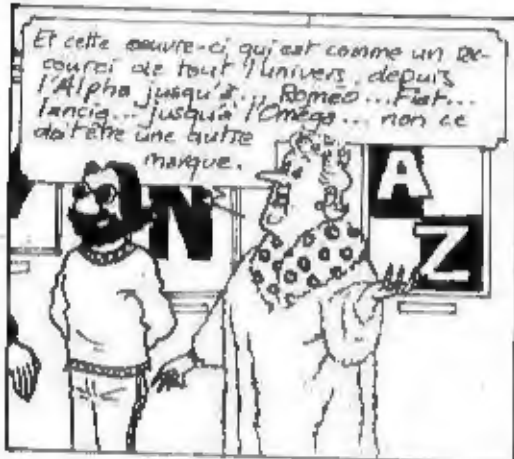 Et cette œuvre-ci qui est comme un rac-
courci de tout l'univers, depuis
l'Alpha jusqu'à... Roméo... Fiat...
lancia... jusqu'à l'Oméga... non ce
doit être une autre
marque.
N
A
Z